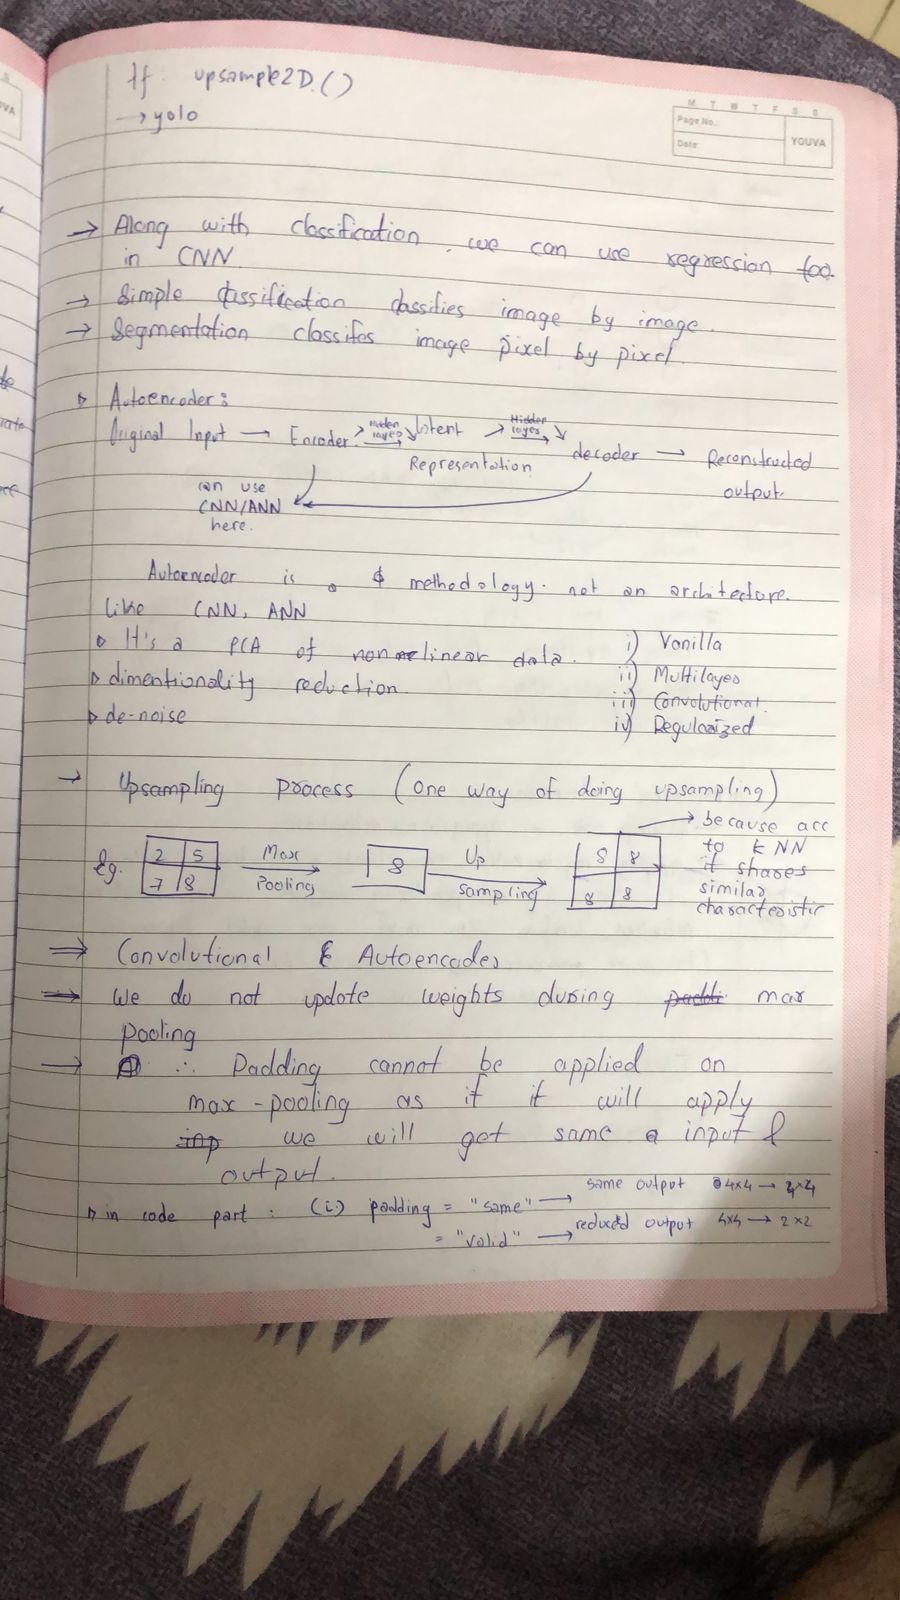 tf. upsample2D.()
→ yolo
M T W T F S S
Page No.:
Date:
YOUVA
→ Along with classification, we can use regression too
in CNN
→ Simple classification classifies image by image.
→ Segmentation classifes image pixel by pixel
▷ Autoencoder:
Original Input → Encoder → Hidden layes → latent Representation → Hidden layes → decoder → Reconstructed output.
can use
CNN/ANN
here.
Autoencoder is a methodology. not an architecture.
like CNN, ANN
▷ It's a PCA of nonlinear data.
▷ dimentionality reduction.
▷ de-noise
i) Vanilla
ii) Multilayes
iii) Convolutional.
iv) Regularized
→ Upsampling process (One way of doing upsampling)
Eg. 2 5 7 8 Max Pooling → 8 Up sampling → 8 8 8 8
→ because acc
to KNN
it shares
similar
characteristic
⇒ Convolutional Autoencodes
→ We do not update weights dusing max
pooling
→ ∴ Padding cannot be applied on
max-pooling as if it will apply
we will get same input &
output.
▷ in code part : (i) padding = "same" → same output 4x4 → 4x4
= "valid" → reduced output 4x4 → 2x2